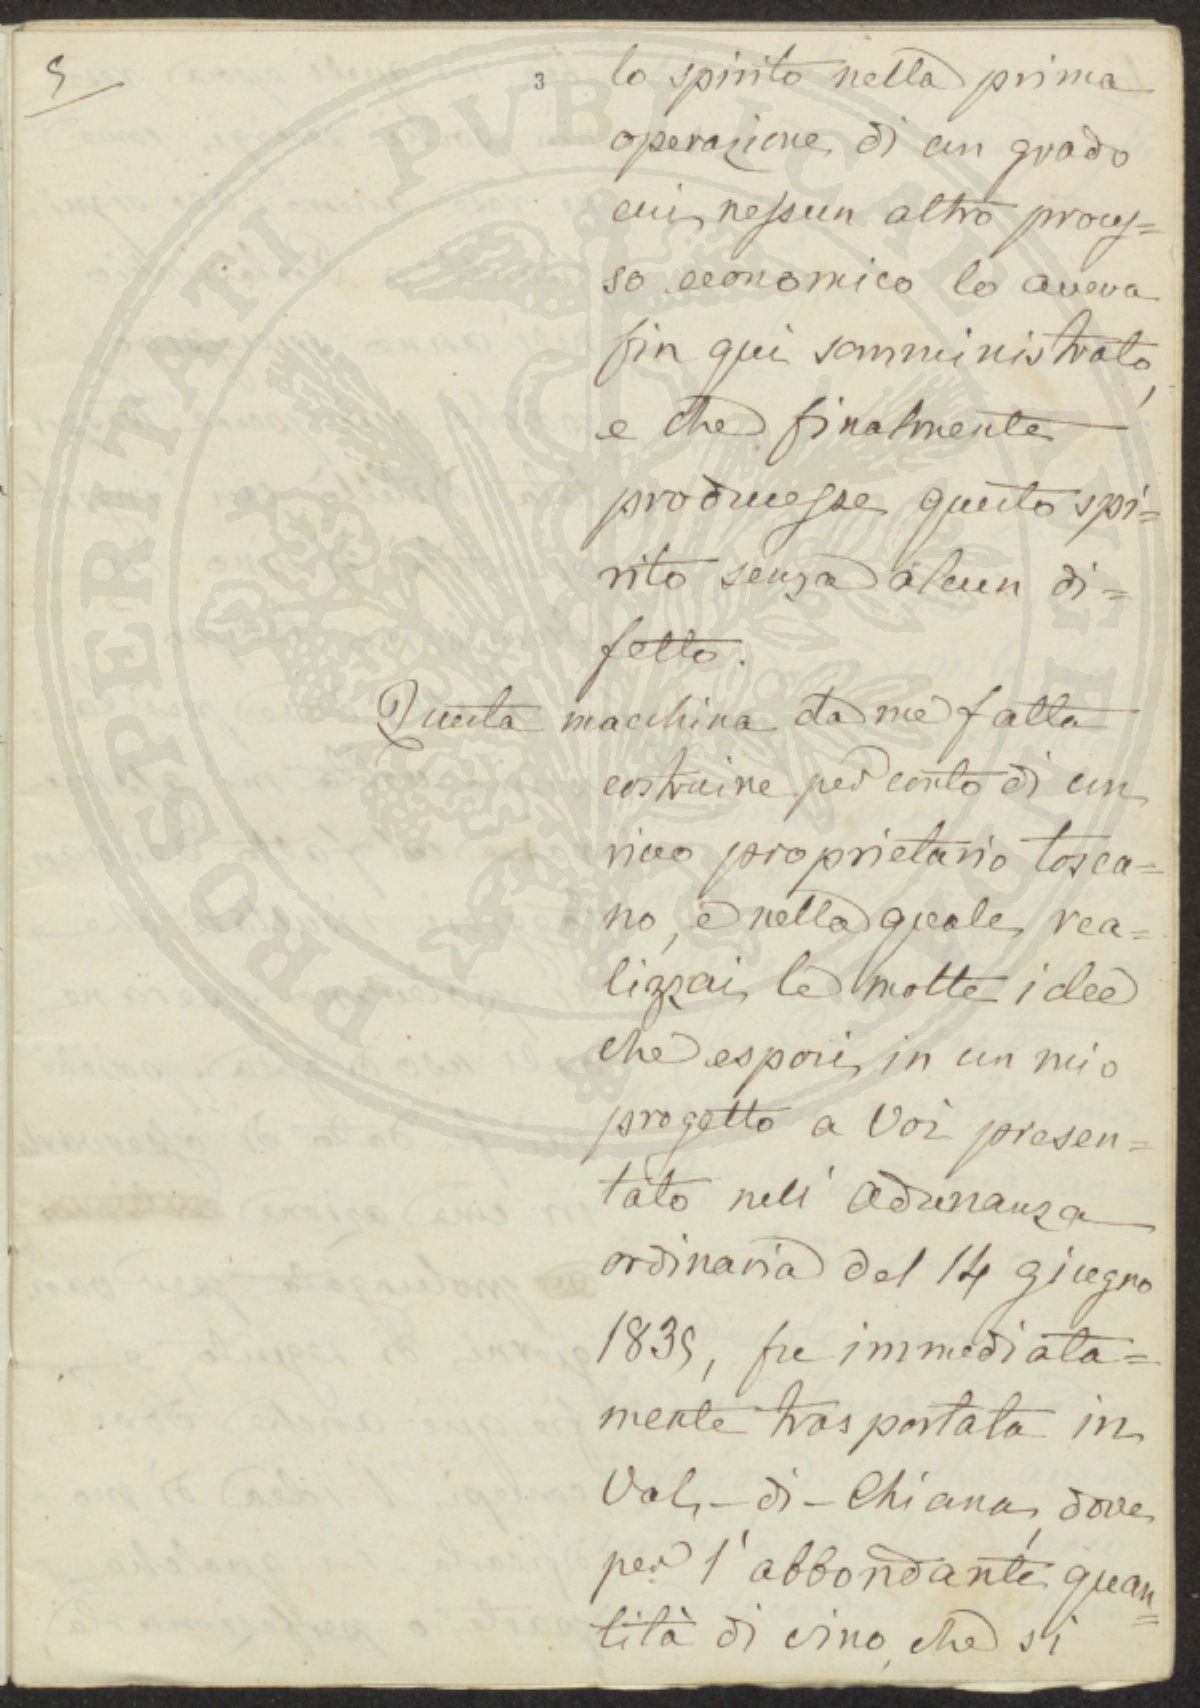 5
3
lo spirito nella prima
operazione di un grado
cui nessun altro proces=
so economico lo aveva
fin qui somministrato,
e che finalmente
producesse questo spi=
rito senza alcun di=
fetto.
Questa macchina da me fatta
costruire per conto di un
ricco proprietario tosca=
no, e nella quale rea=
lizzai le molte idee
che esposi in un mio
progetto a Voi presen=
tato nell' adunanza
ordinaria del 14 giugno
1835, fu immediata=
mente trasportata in
Val-di-Chiana, dove
per l' abbondante quan=
tità di vino, che si
PROSPERITATI PVBLICAE AVGENDAE